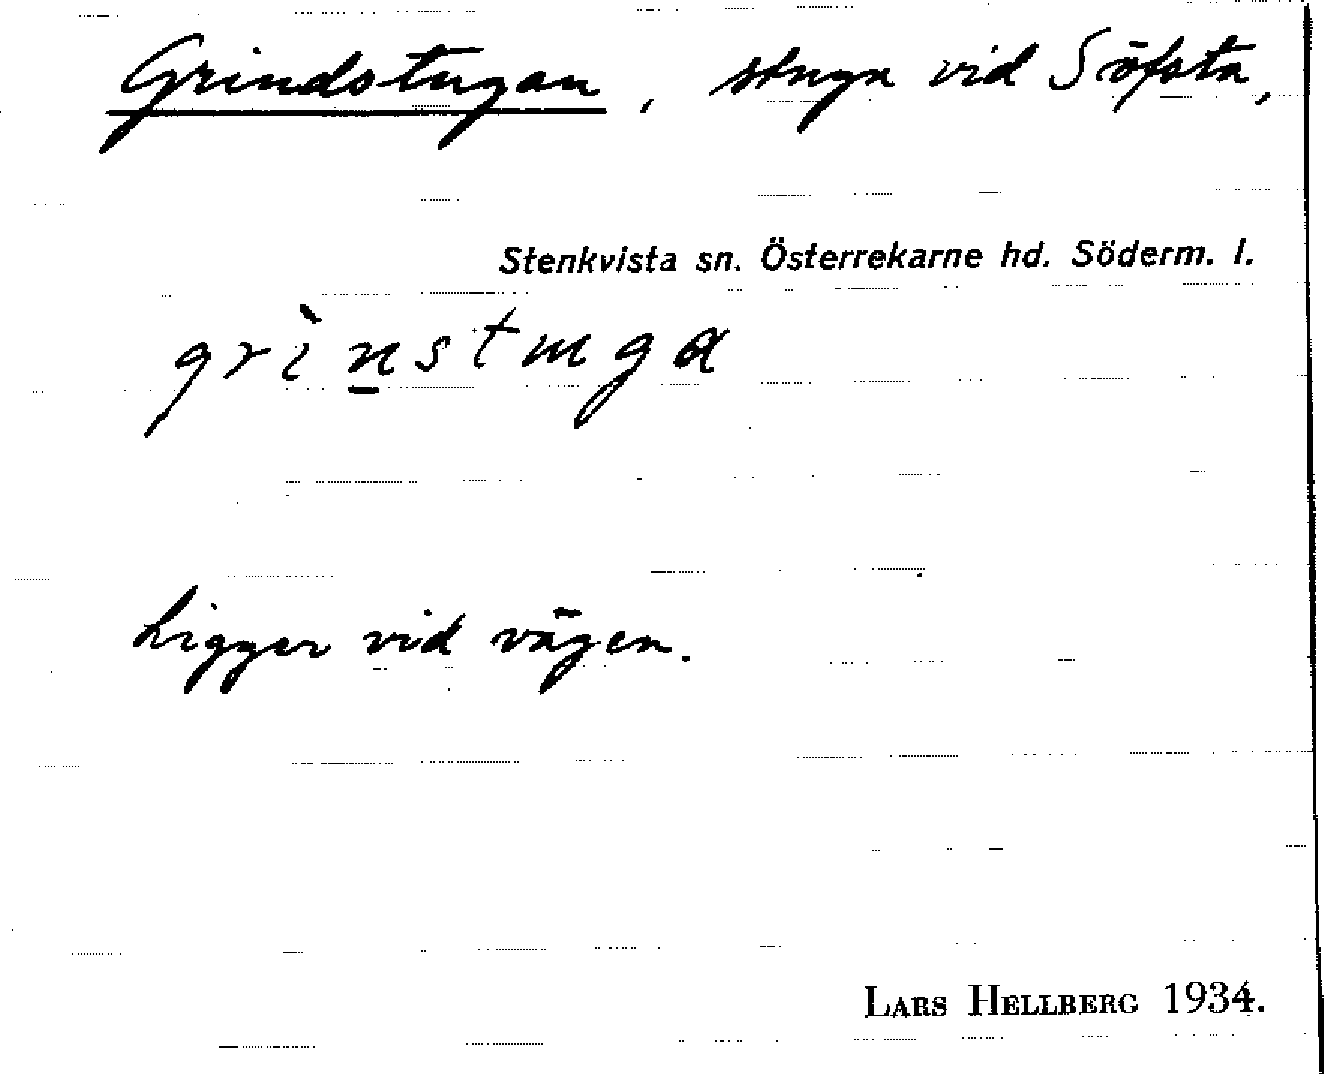 Grindstugan, stuga vid Söfsta,
Stenkvista sn. Österrekarne hd. Söderm. l.
grìn̲stuga
Ligger vid vägen.
LARS HELLBERG 1934.